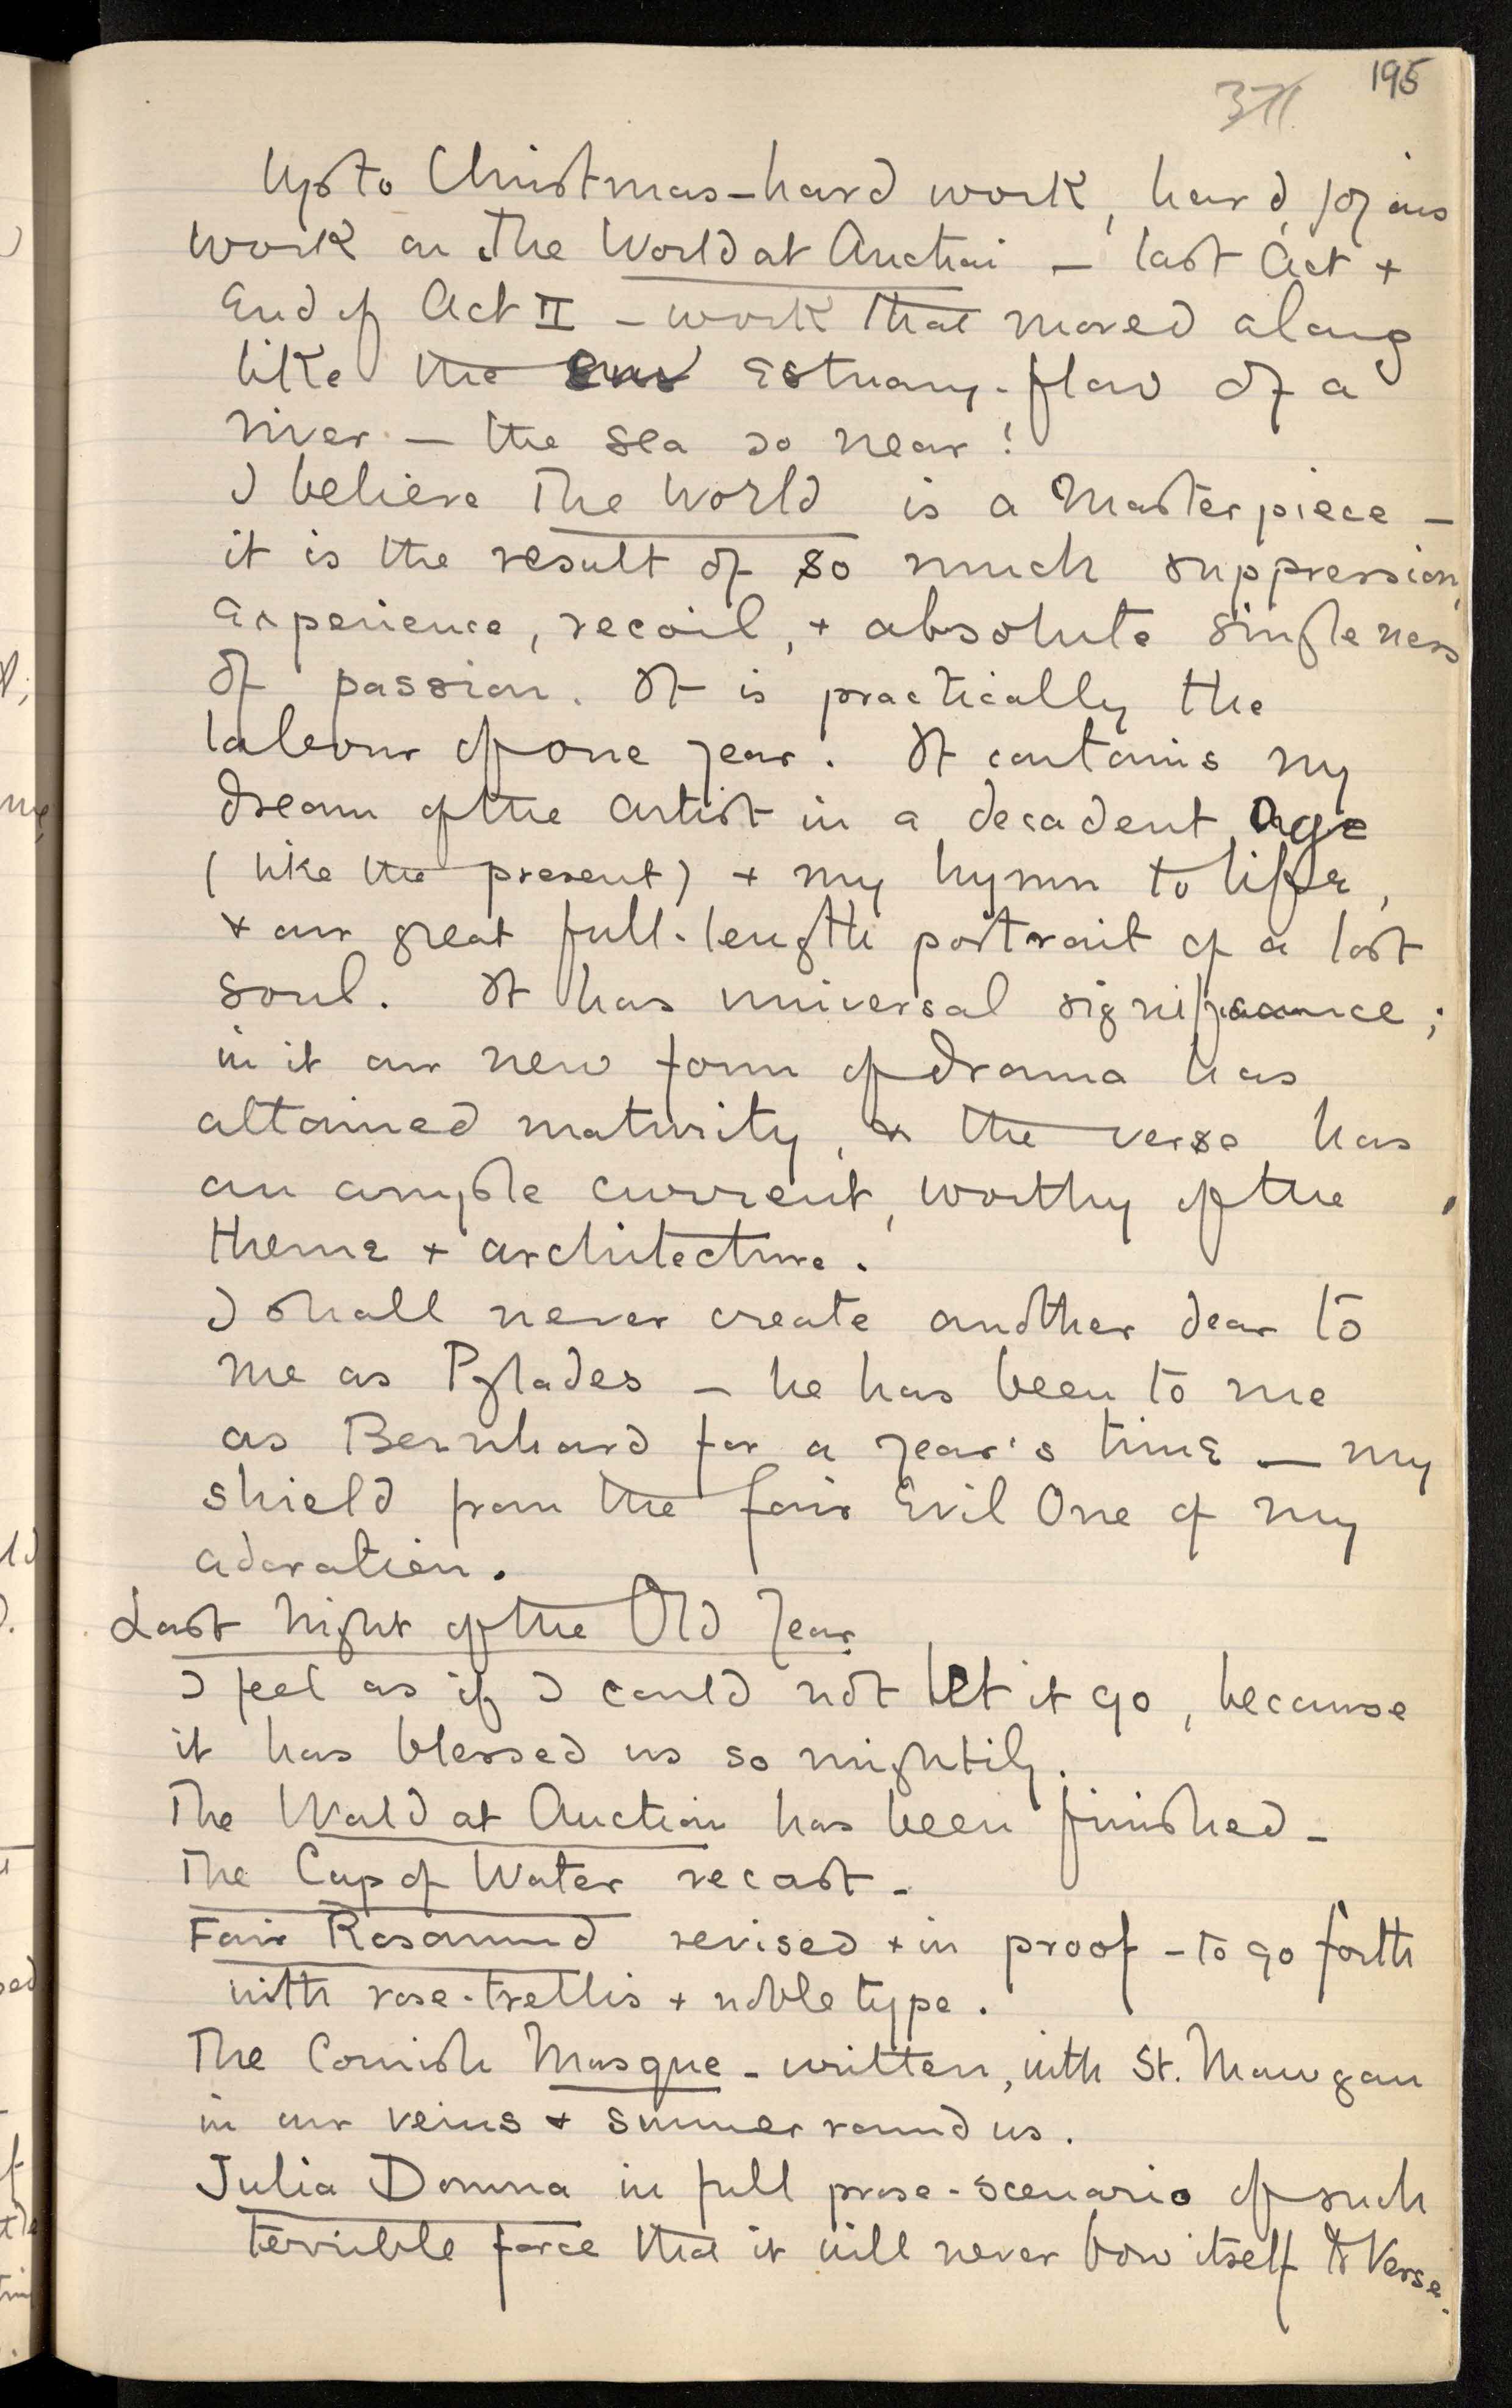 195
371
Up to Christmas – hard work, hard, joyous
work on The World at Auction – last Act +
End of Act II – work that moved along
like the estuary-flow of a
river – the sea so near!
I believe The World is a Masterpiece –
it is the result of so much suppression,
experience, recoil, + absolute singleness
of passion. It is practically the
labour of one year. It contains my
dream of the artist in a decadent age
(like the present) + my hymn to life,
+ our great full-length portrait of a lost
soul. It has universal significance;
in it our new form of drama has
attained maturity, & the verse has
an ample current, worthy of the
theme + architecture.
I shall never create another dear to
me as Pylades – he has been to me
as Bernhard for a year's time – my
shield from the fair Evil One of my
adoration.
Last Night of the Old Year
I feel as if I could not let it go, because
it has blessed us so mightily.
The World at Auction has been finished –
The Cup of Water recast –
Fair Rosamund revised + in proof – to go forth
with rose-trellis + noble type.
The Cornish Masque – written, with St. Mawgan
in our veins + summer round us.
Julia Domna in full prose-scenario of such
terrible force that it will never bow itself to Verse.